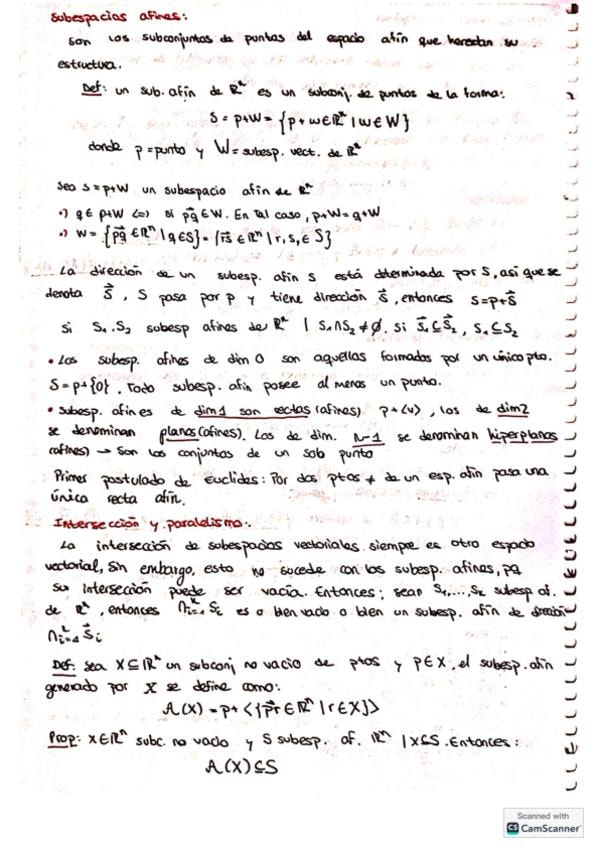 Subespacios afines:
Son los subconjuntos de puntos del espacio afín que heredan su
estructura.
Def: un sub. afín de ℝⁿ es un subconj. de puntos de la forma:
S = p+W = {p+w∈ℝⁿ | w∈W}
donde p = punto y W = subesp. vect. de ℝⁿ
Sea S = p+W un subespacio afín de ℝⁿ
•) q ∈ p+W <=> si p⃗q ∈ W. En tal caso, p+W = q+W
•) W = {p⃗q ∈ ℝⁿ | q∈S} = {r⃗s ∈ ℝⁿ | r, s, ∈ S}
La dirección de un subesp. afín S está determinada por S, así que se
denota S⃗, S pasa por p y tiene dirección S⃗, entonces S = p+S⃗
Si S₁, S₂ subesp afines de ℝⁿ | S₁∩S₂ ≠ ∅. si S⃗₁ ⊆ S⃗₂, S₁ ⊆ S₂
• Los subesp. afines de dim 0 son aquellos formados por un único pto.
S = p+{0}. Todo subesp. afín posee al menos un punto.
• Subesp. afines de dim 1 son rectas (afines). p+<v>, los de dim 2
se denominan planos (afines). Los de dim. n-1 se denominan hiperplanos
(afines) → Son los conjuntos de un solo punto
Primer postulado de Euclides: Por dos ptos ≠ de un esp. afín pasa una
única recta afín.
Intersección y paralelismo:
La intersección de subespacios vectoriales siempre es otro espacio
vectorial, sin embargo, esto no sucede con los subesp. afines, pq
su intersección puede ser vacía. Entonces: sean S₁,...,Sk subesp af.
de ℝⁿ, entonces ∩ᵢ₌₁ᵏ Sᵢ es o bien vacío o bien un subesp. afín de dirección
∩ᵢ₌₁ᵏ S⃗ᵢ
Def: sea X ⊆ ℝⁿ un subconj no vacío de ptos y p∈X, el subesp. afín
generado por X se define como:
A(X) = p+ <{p⃗r ∈ ℝⁿ | r∈X}>
Prop: X∈ℝⁿ subc. no vacío y S subesp. af. ℝⁿ | X⊆S. Entonces:
A(X) ⊆ S
Scanned with
CS CamScanner